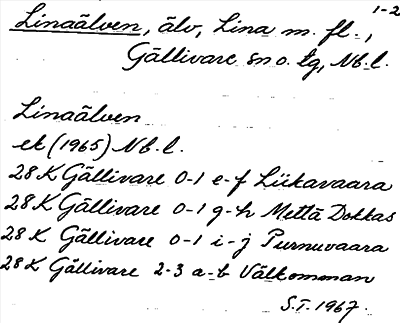 1-2
Linaälven, älv, Lina m. fl.,
Gällivare sn o. tg, Nb.l.
Linaälven
ek (1965) Nb.l.
28 K Gällivare 0-1 e-f Liikavaara
28 K Gällivare 0-1 g-h Mettä Dokkas
28 K Gällivare 0-1 i-j Purnuvaara
28 K Gällivare 2-3 a-b Välkomman
S.T. 1967.